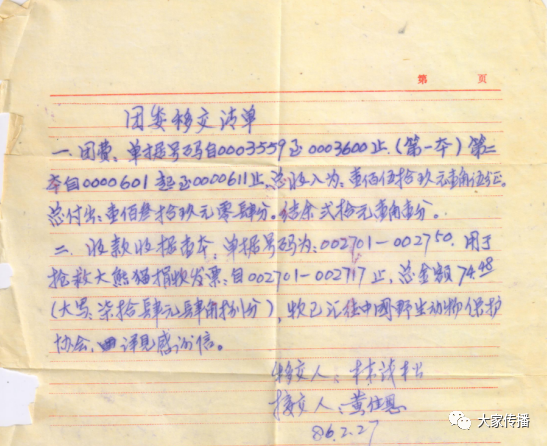 第 页
团委移交清单
一、团费：单据号码自0003559至0003600止.(第一本)第二
本自0000601起至0000611止,总收入为：壹佰伍拾玖元壹角伍分.
总付出：壹佰叁拾玖元零肆分.结余式拾元壹角壹分.
二、收款收据壹本,单据号码为：002701—002750.用于
抢救大熊猫捐收发票：自002701—002717止,总金额74.48
(大写：柒拾肆元肆角捌分),收已汇往中国野生动物保护
协会,详见感谢信。
移交人：林
接交人：黄佳恩
86.2.27
大家传播